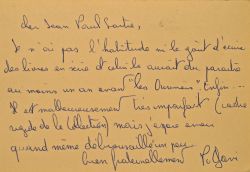 cher Jean Paul Sartre,
Je n'ai pas l'habitude ni le goût d'écrire
des livres en série et celui-ci aurait du paraître
au moins un an avant "les Ouvriers". Enfin...
Il est malheureusement très imparfait (cadre
rigide de la collection) mais j'espère avoir
quand même débroussaillé un peu
bien fraternellement